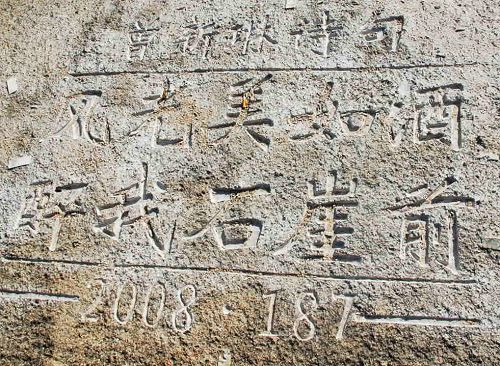 曾新琳诗句
风光美如酒
醉我石崖前
2008·187